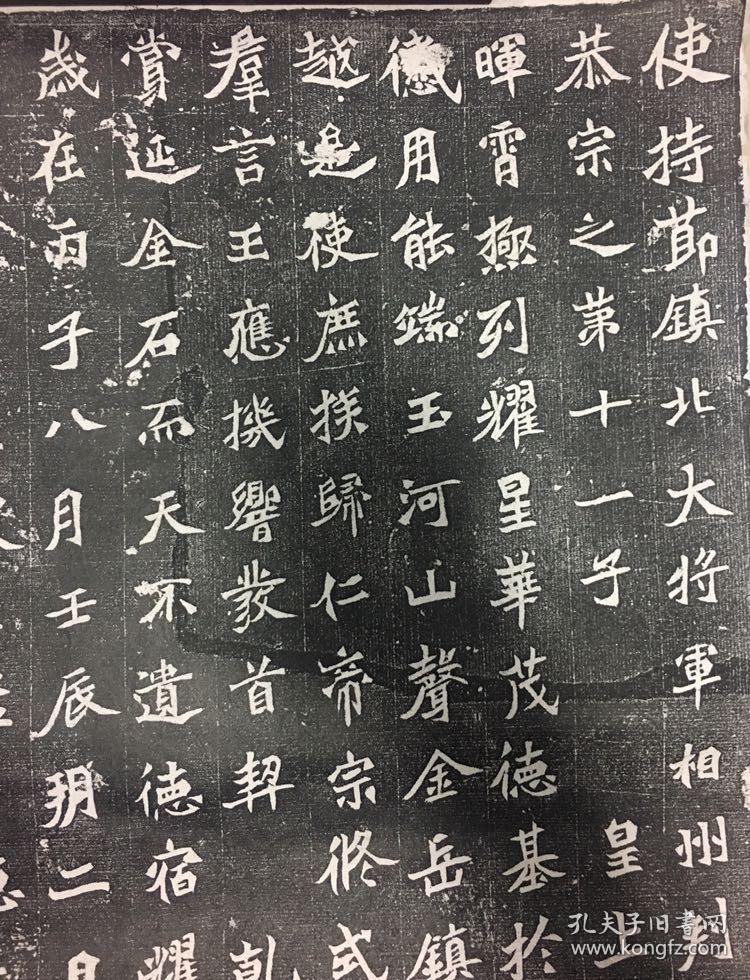 使持節鎮北大将軍相州刺
恭宗之苐十一子 皇上
暉霄極列耀星華茂德基於
徳用能端玉河山聲金岳鎮
越是使庶族歸仁帝宗攸式
羣言王應機響發首契 乹
賞延金石而天不遺徳宿耀
歳在丙子八月壬辰朔二日
孔夫子旧书网
www.kongfz.com